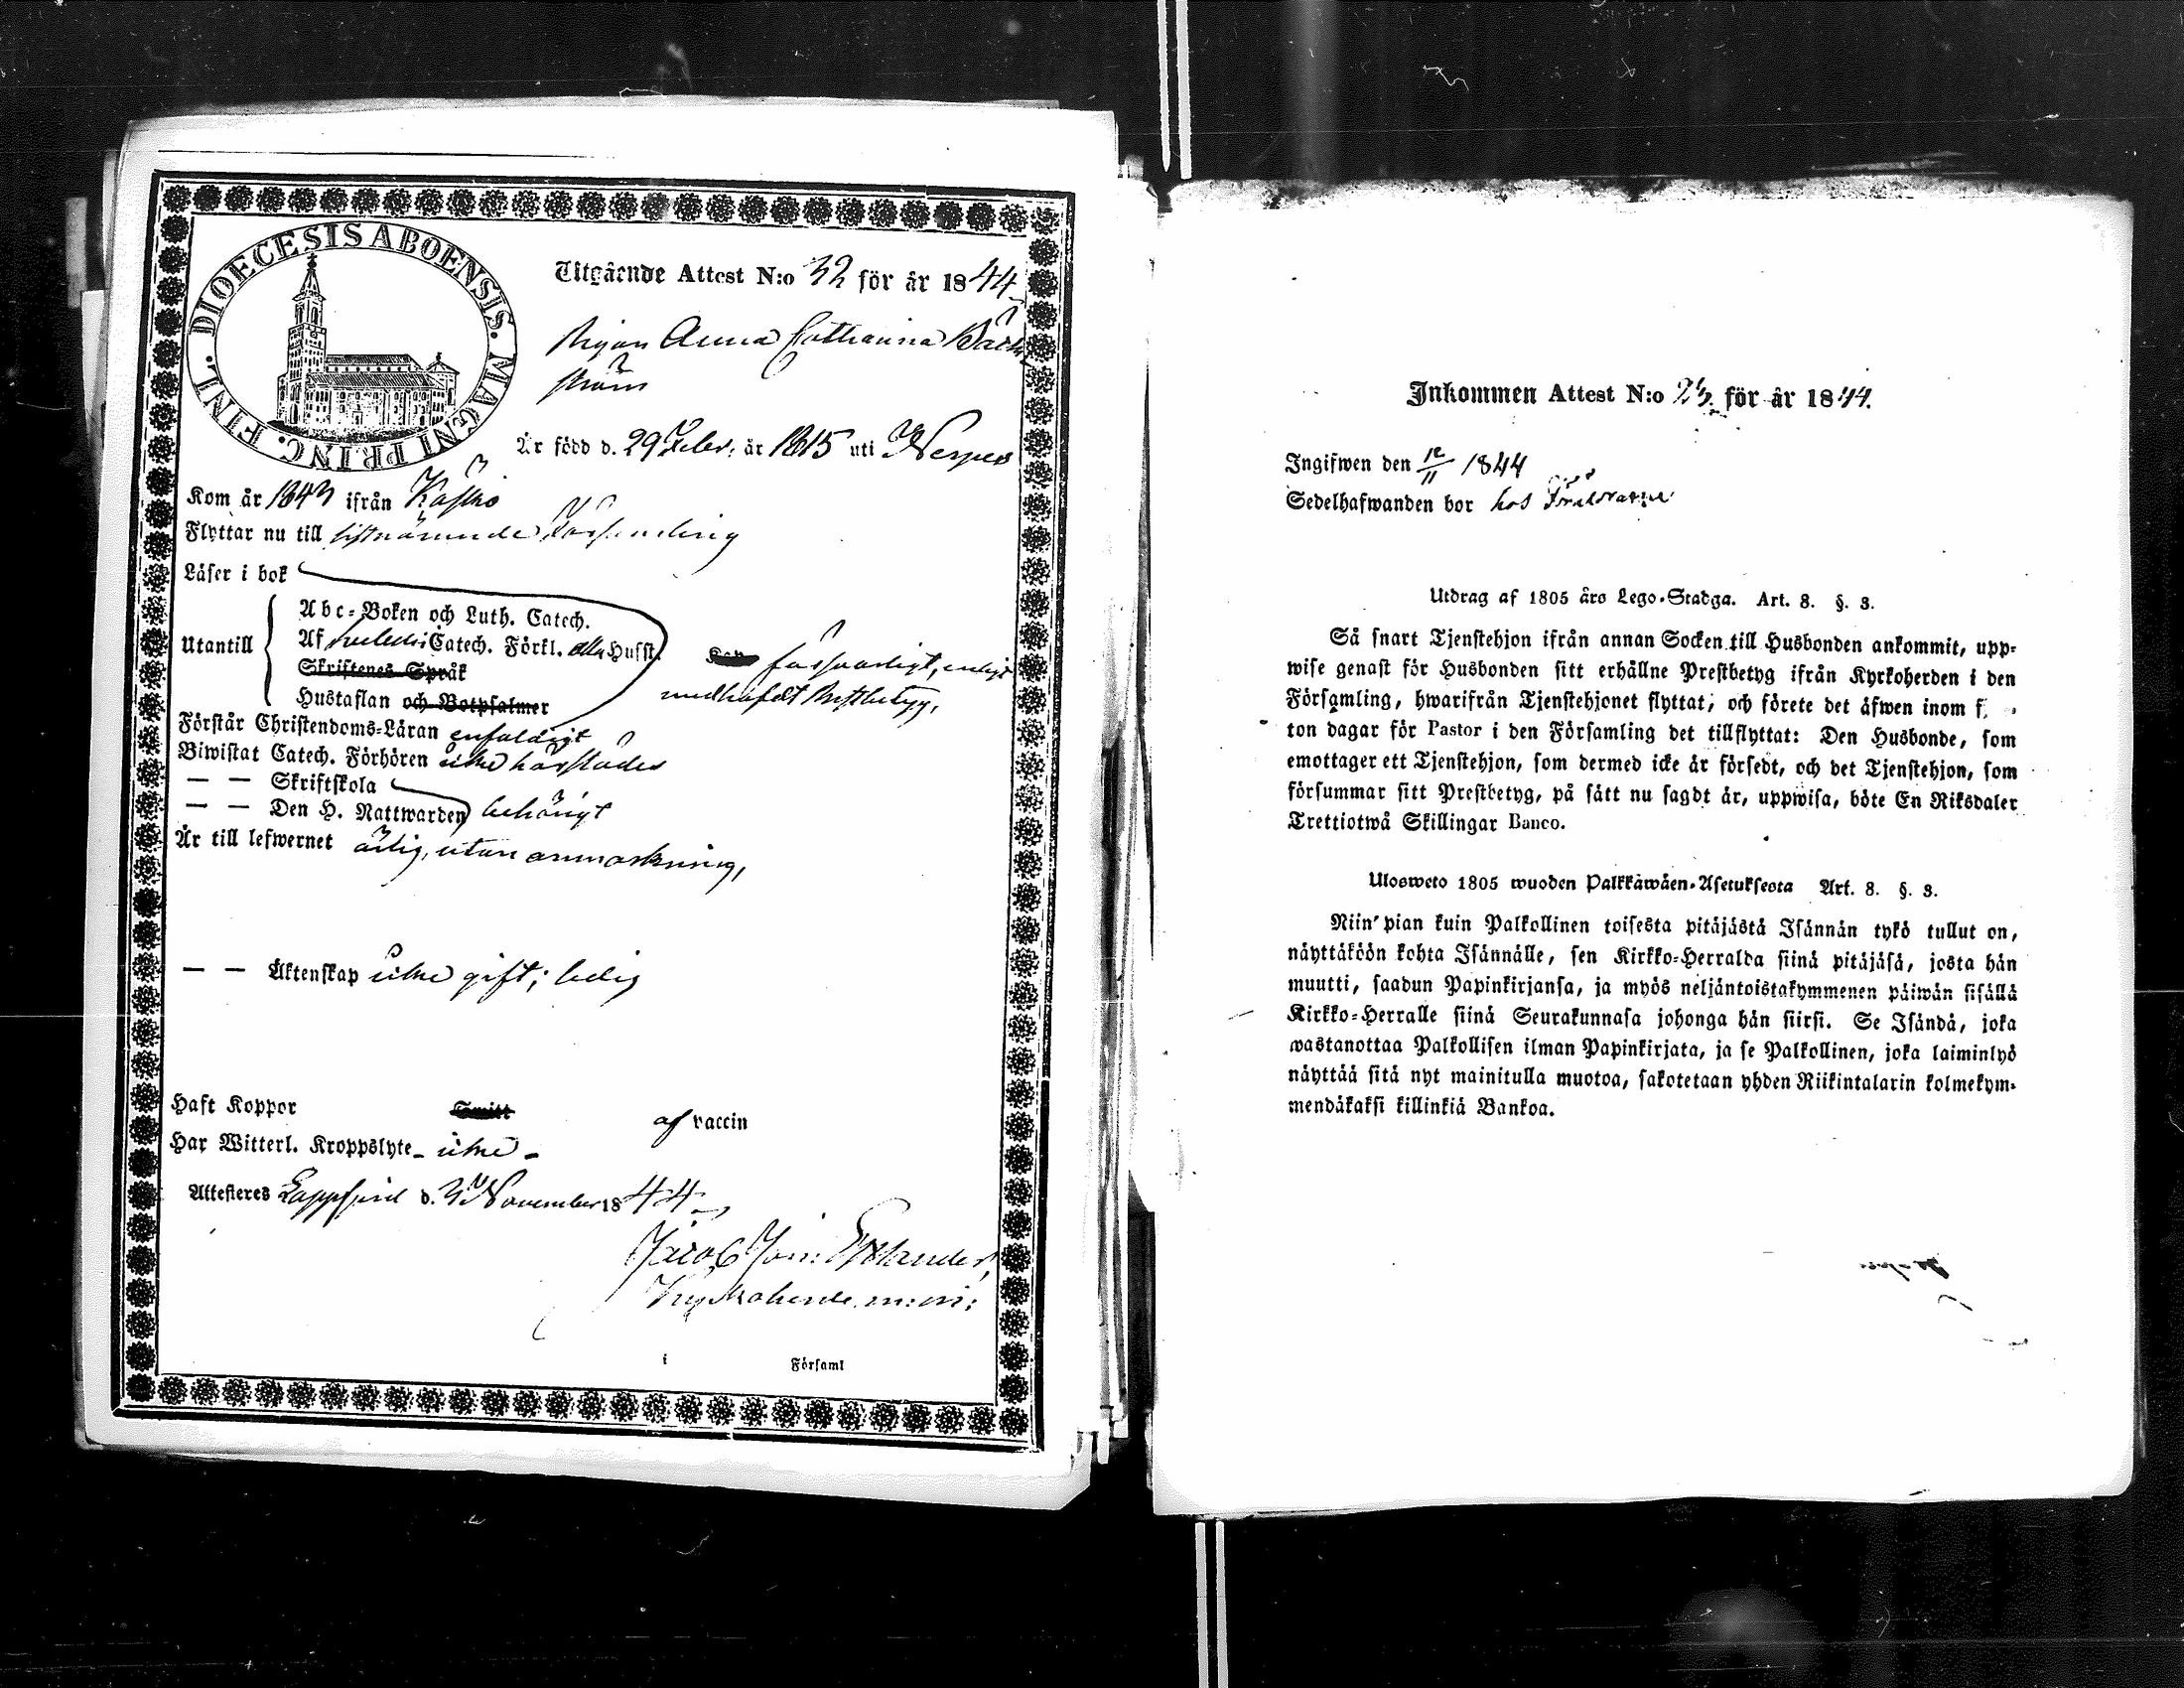 DIOECESIS ABOENSIS. MAGNI PRINC. FINL.
Utgående Attest N:o 32 för år 1844
Pigan Anna Catharina Back
ström
Är född d. 29 Febr. år 1815 uti Nerpes
Kom år 1843 ifrån Kaskö
Flyttar nu till sistnämnde Församling
Läser i bok
Utantill
Abc-Boken och Luth. Catech.
Af Svebelii Catech. Förkl. alla Husst.
Skriftenes Språk
Hustaflan och Botpsalmer
försvarligt, enligt
medhafdt Prestbetyg,
Förstår Christendoms-Läran enfaldigt
Biwistat Catech. Förhören icke härstädes
— — Skriftskola
— — Den H. Nattwarden behörigt
Är till lefwernet ärlig, utan anmärkning,
— — Äktenskap icke gift; ledig
Haft Koppor Smitt af vaccin
Har Witterl. Kroppslyte - icke -
Attesteres Lappfjerd d. 3 November 1844
Jacob Joh:
Kyrkoherde. m:m:
i Församl
Inkommen Attest N:o 23 för år 1844.
Ingifwen den 12/11 1844
Sedelhafwanden bor hos
Utdrag af 1805 års Lego-Stadga. Art. 8. §. 3.
Så snart Tjenstehjon ifrån annan Socken till Husbonden ankommit, upp-
wise genast för Husbonden sitt erhållne Prestbetyg ifrån Kyrkoherden i den
Församling, hwarifrån Tjenstehjonet flyttat; och förete det äfwen inom f
ton dagar för Pastor i den Församling det tillflyttat: Den Husbonde, som
emottager ett Tjenstehjon, som dermed icke är försedt, och det Tjenstehjon, som
försummar sitt Prestbetyg, på sätt nu sagdt är, uppwisa, böte En Riksdaler
Trettiotwå Skillingar Banco.
Ulosweto 1805 wuoden Palkkawäen-Asetuksesta Art. 8. §. 3.
Niin' pian kuin Palkollinen toisesta pitäjästä Isännän tykö tullut on,
näyttäköön kohta Isännälle, sen Kirkko-Herralda siinä pitäjäsä, josta hän
muutti, saadun Papinkirjansa, ja myös neljäntoistakymmenen päiwän sisällä
Kirkko-Herralle siinä Seurakunnasa johonga hän siirsi. Se Isändä, joka
wastanottaa Palkollisen ilman Papinkirjata, ja se Palkollinen, joka laiminlyö
näyttää sitä nyt mainitulla muotoa, sakotetaan yhden Riikintalarin kolmekym-
mendäkaksi killinkiä Bankoa.